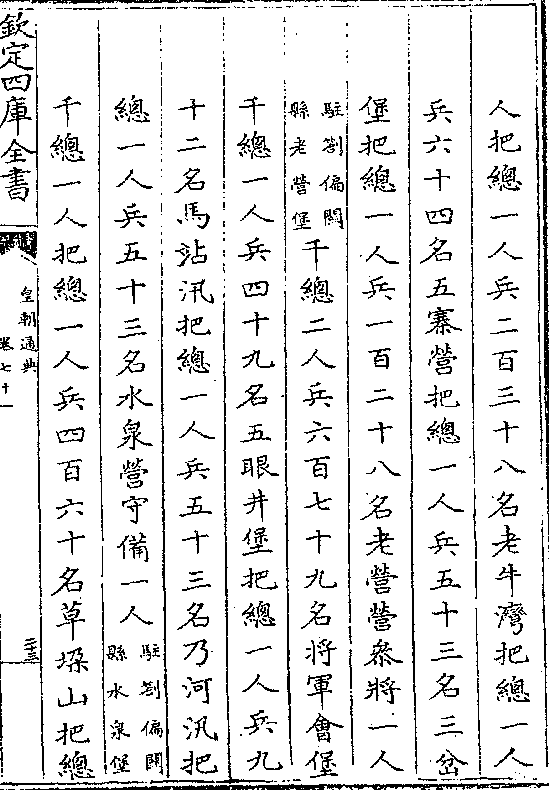 人把總一人兵二百三十八名老牛灣把總一人
兵六十四名五寨營把總一人兵五十三名三岔
堡把總一人兵一百二十八名老營營叅將一人
駐劄偏關
縣老營堡
千總二人兵六百七十九名將軍會堡
千總一人兵四十九名五眼井堡把總一人兵九
十二名馬站汛把總一人兵五十三名乃河汛把
總一人兵五十三名水泉營守備一人
駐劄偏關
縣水泉堡
千總一人把總一人兵四百六十名草垜山把總
欽定四庫全書
皇朝通典
卷七十一
二十三